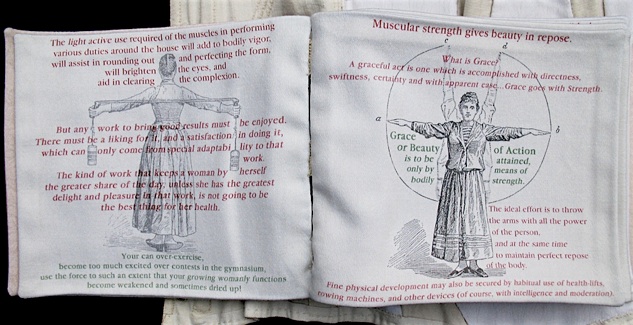 The light active use required of the muscles in performing
various duties around the house will add to bodily vigor,
will assist in rounding out and perfecting the form,
will brighten the eyes, and
aid in clearing the complexion.
But any work to bring good results must be enjoyed.
There must be a liking for it, and a satisfaction in doing it,
which can only come from special adaptability to that
work.
The kind of work that keeps a woman by herself
the greater share of the day, unless she has the greatest
delight and pleasure in that work, is not going to be
the best thing for her health.
Your can over-exercise,
become too much excited over contests in the gymnasium,
use the force to such an extent that your growing womanly functions
become weakened and sometimes dried up!
Muscular strength gives beauty in repose.
c d
What is Grace?
A graceful act is one which is accomplished with directness,
swiftness, certainty and with apparent ease. Grace goes with Strength.
a b
Grace of Action
or Beauty attained,
is to be means of
only by strength.
bodily
The ideal effort is to throw
the arms with all the power
of the person,
and at the same time
to maintain perfect repose
of the body.
Fine physical development may also be secured by habitual use of health-lifts,
rowing machines, and other devices (of course, with intelligence and moderation).